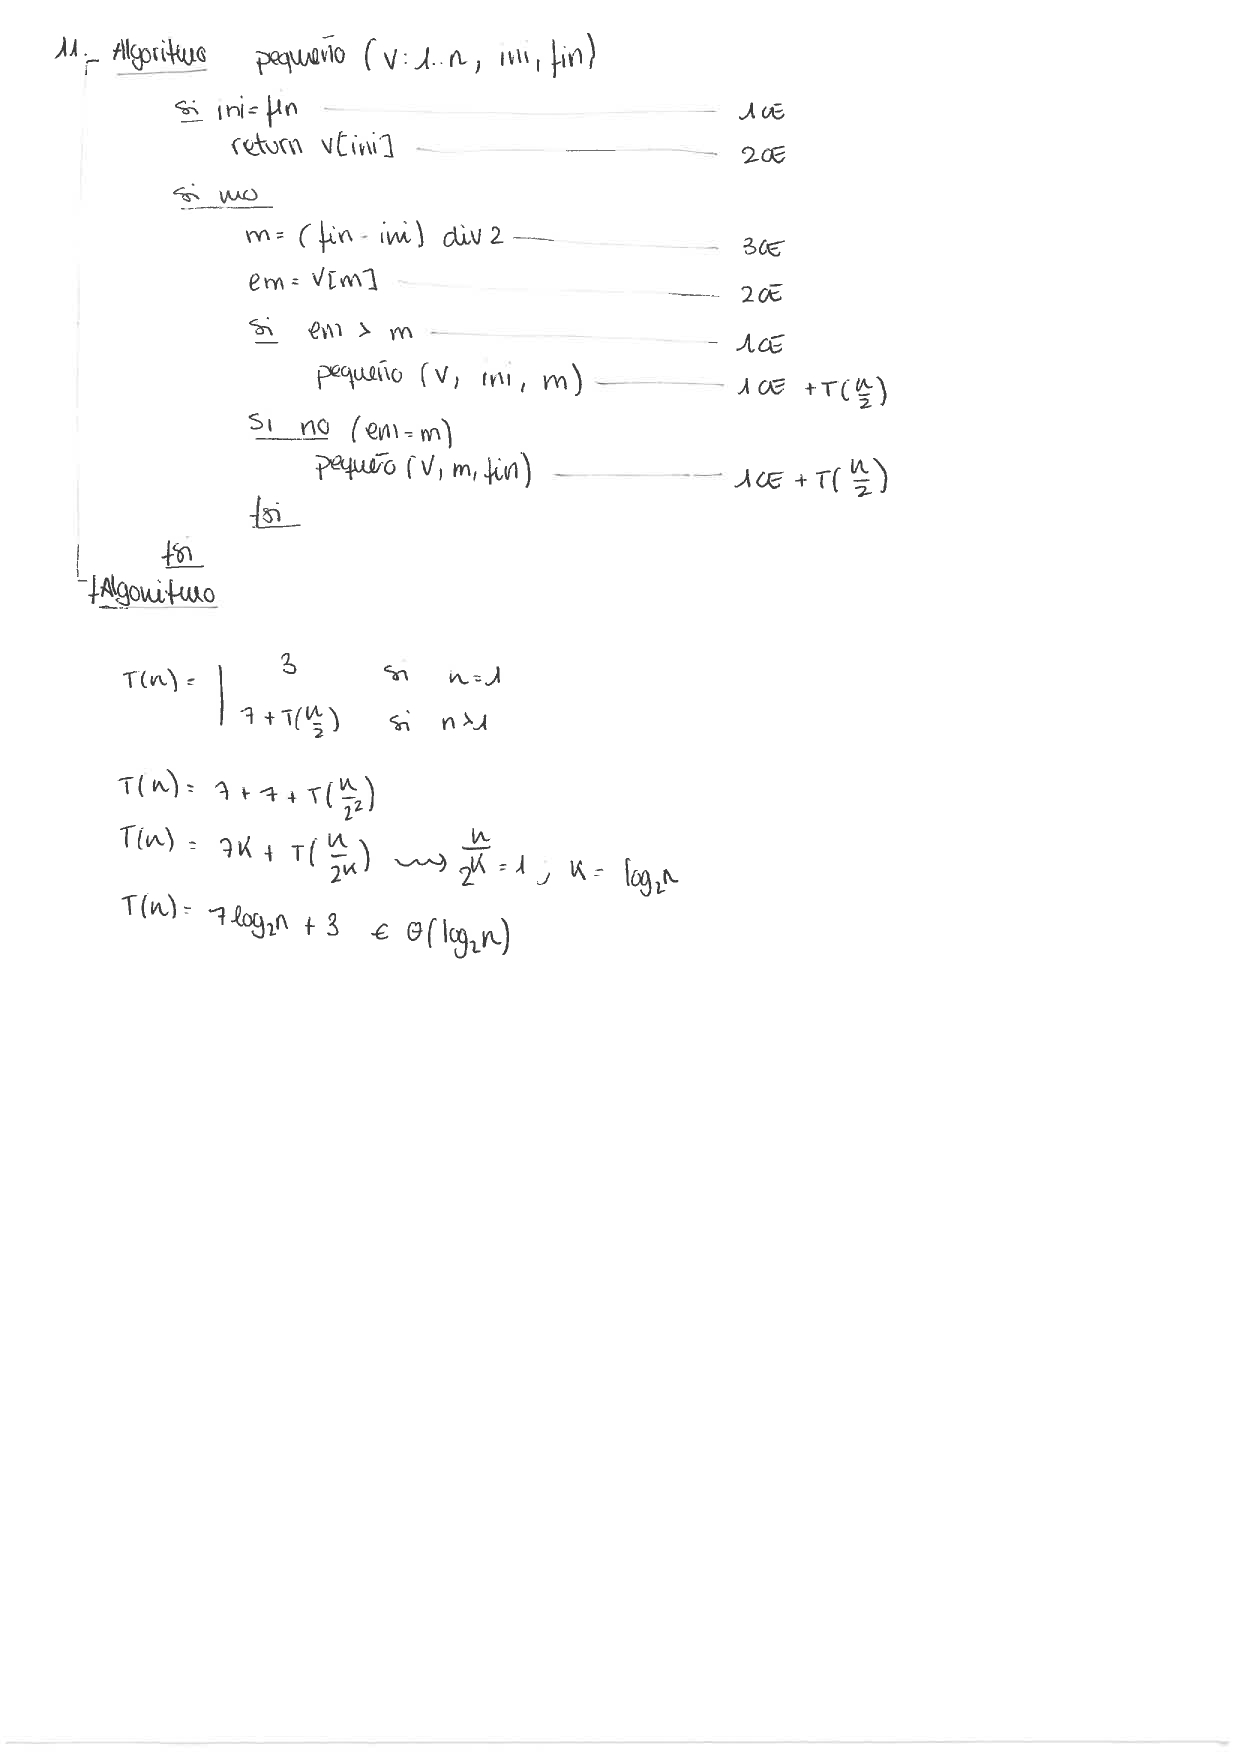 11.- Algoritmo pequeño (v:1..n, ini, fin)
si ini=fin 1OE
return v[ini] 2OE
si no
m=(fin-ini) div 2 3OE
em=v[m] 2OE
si em > m 1OE
pequeño (v, ini, m) 1OE + T(n/2)
si no (em=m)
pequeño (v, m, fin) 1OE + T(n/2)
fsi
fsi
fAlgoritmo
T(n) = | 3 si n=1
7 + T(n/2) si n>1
T(n) = 7 + 7 + T(n/2²)
T(n) = 7K + T(n/2^K) ⇝ n/2^K = 1; K = log₂n
T(n) = 7log₂n + 3 ∈ Θ(log₂n)